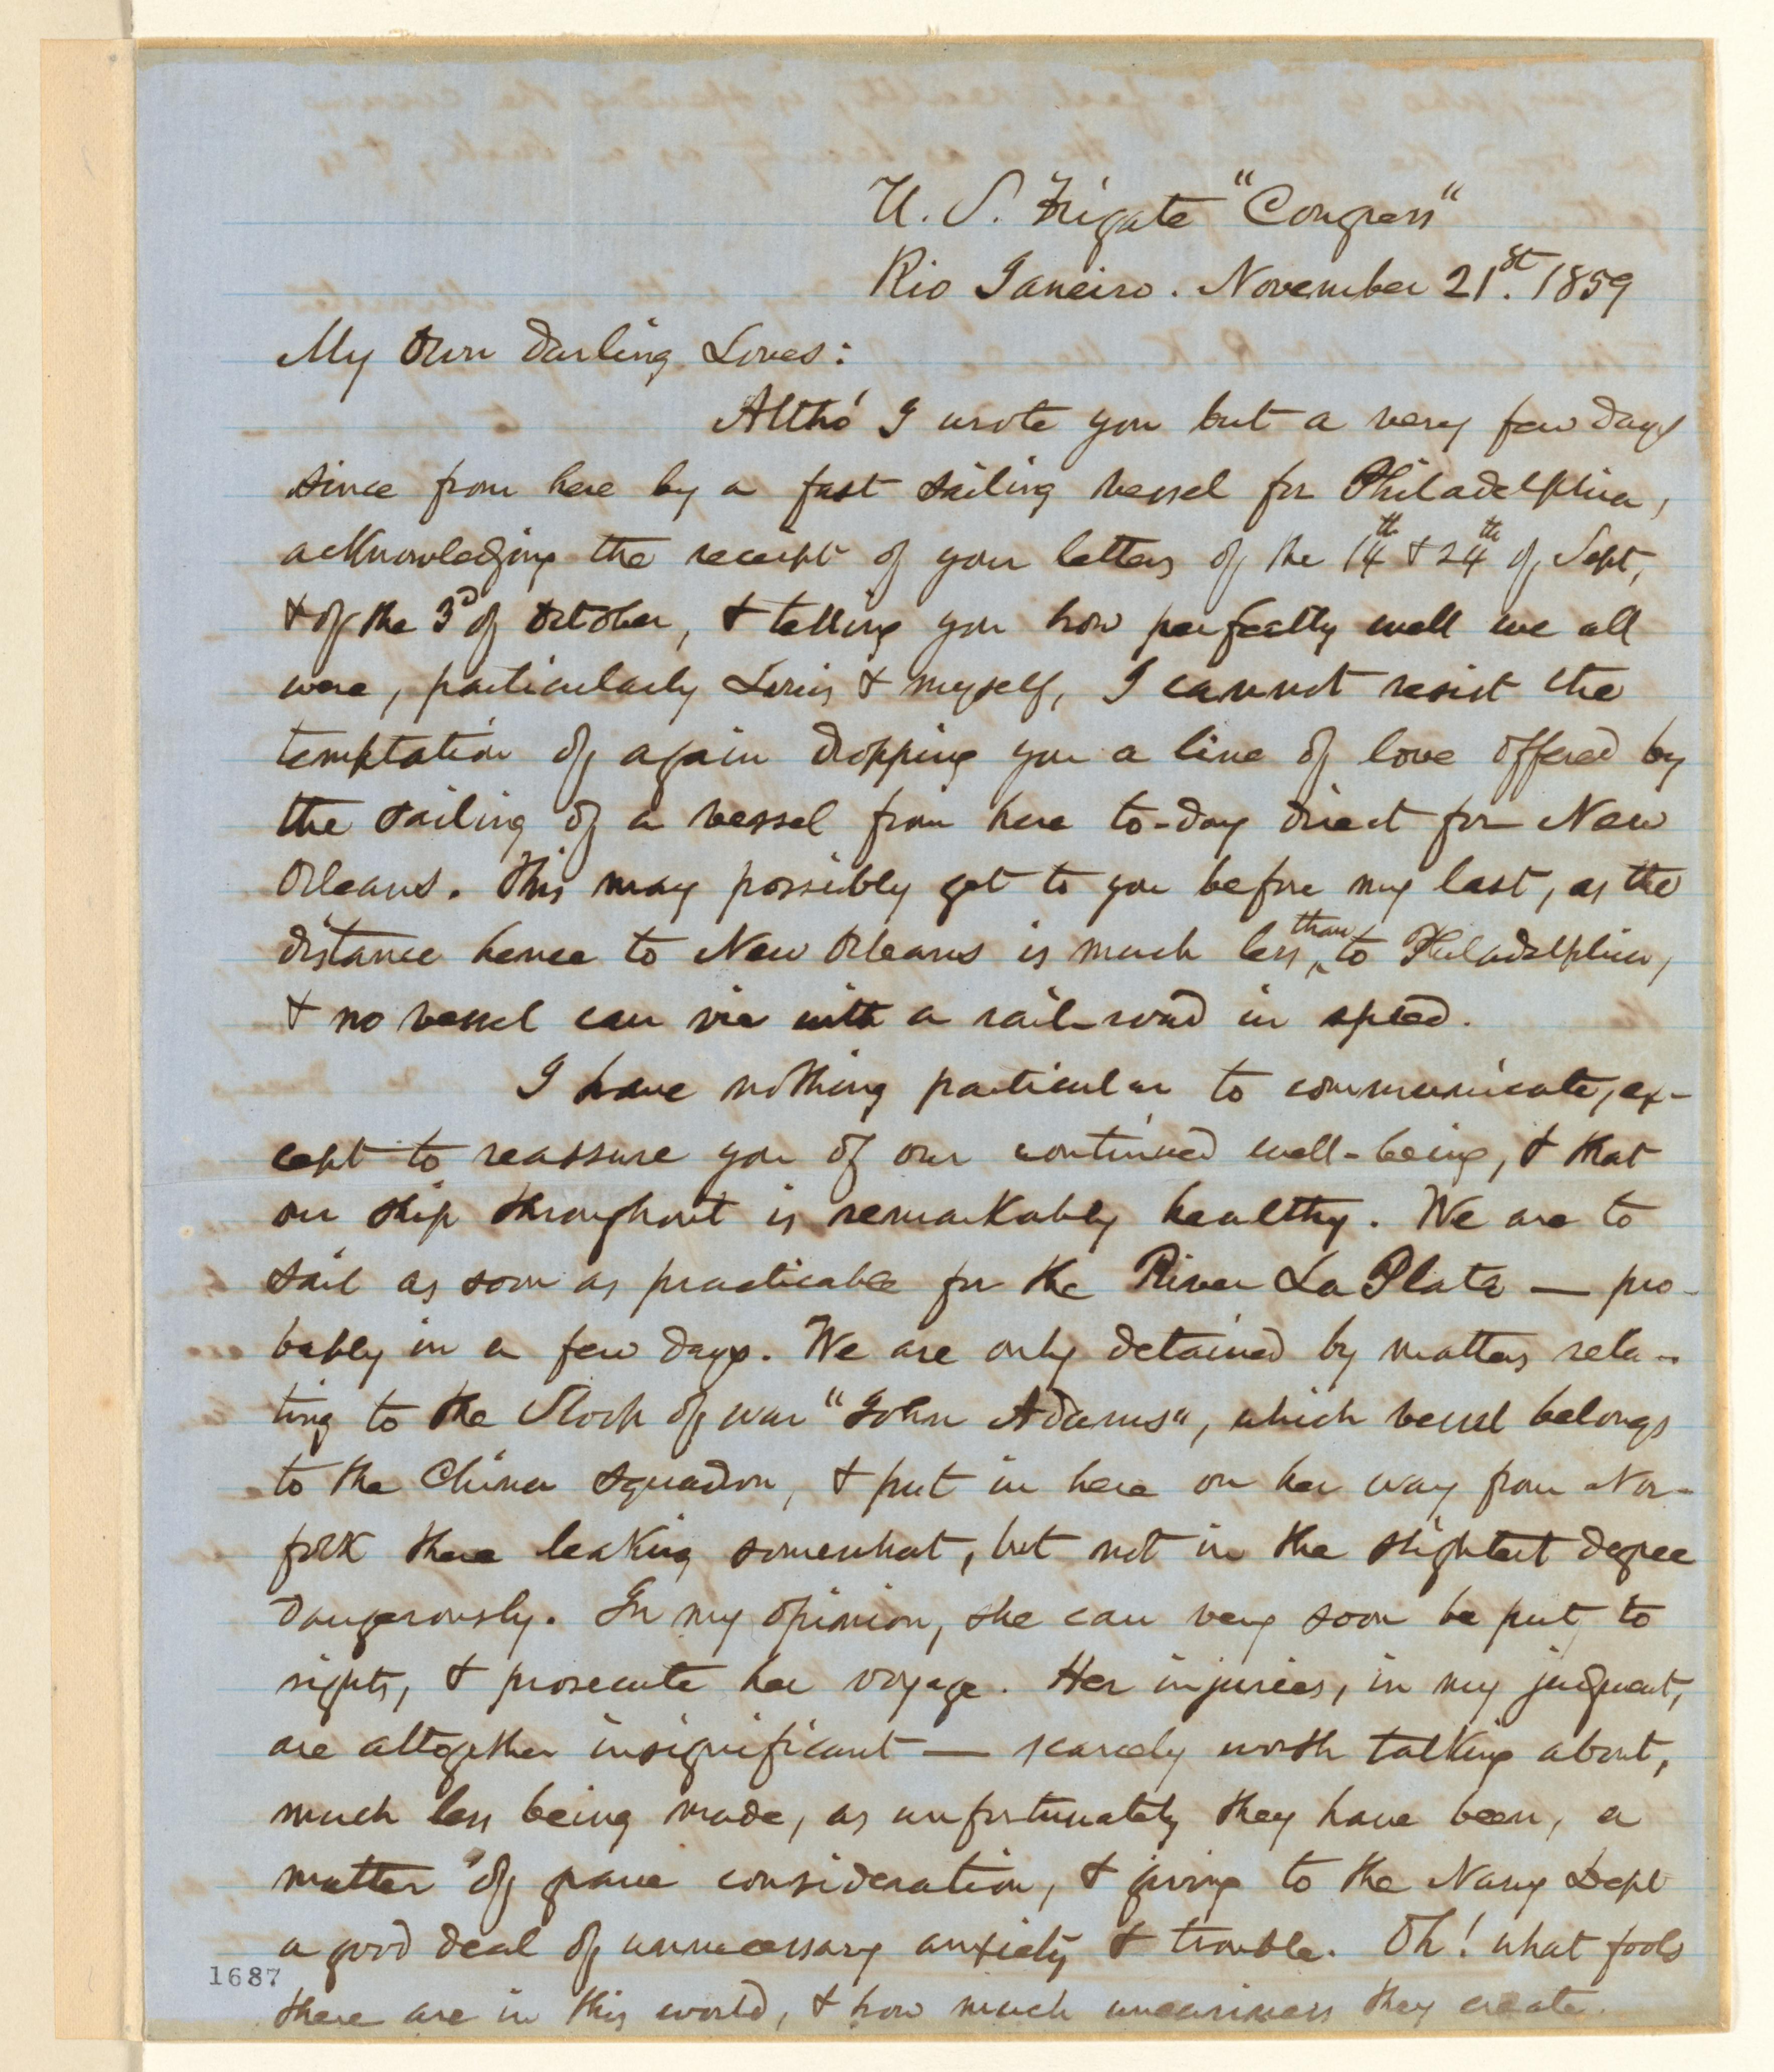 U. S. Frigate "Congress"
Rio Janeiro. November 21st. 1859
My Own Darling Loves:
Altho' I wrote you but a very few days
since from here by a fast sailing vessel for Philadelphia,
acknowledging the receipt of your letters of the 14th & 24th of Sept,
& of the 3d of October, & telling you how perfectly well we all
were, particularly Louis & myself, I cannot resist the
temptation of again dropping you a line of love offered by
the sailing of a vessel from here to-day direct for New
Orleans. This may possibly get to you before my last, as the
distance hence to New Orleans is much less than to Philadelphia,
& no vessel can vie with a rail-road in speed.
I have nothing particular to communicate, ex-
cept to reassure you of our continued well-being, & that
our ship throughout is remarkably healthy. We are to
sail as soon as practicable for the River La Plata — pro-
bably in a few days. We are only detained by matters rela-
ting to the Sloop of war "John Adams", which vessel belongs
to the China Squadron, & put in here on her way from Nor-
folk there leaking somewhat, but not in the slightest degree
dangerously. In my opinion, she can very soon be put to
rights, & prosecute her voyage. Her injuries, in my judgment,
are altogether insignificant — scarcely worth talking about,
much less being made, as unfortunately they have been, a
matter of grave consideration, & giving to the Navy Dept
a good deal of unnecessary anxiety & trouble. Oh! what fools
1687
there are in this world, & how much uneasiness they create.